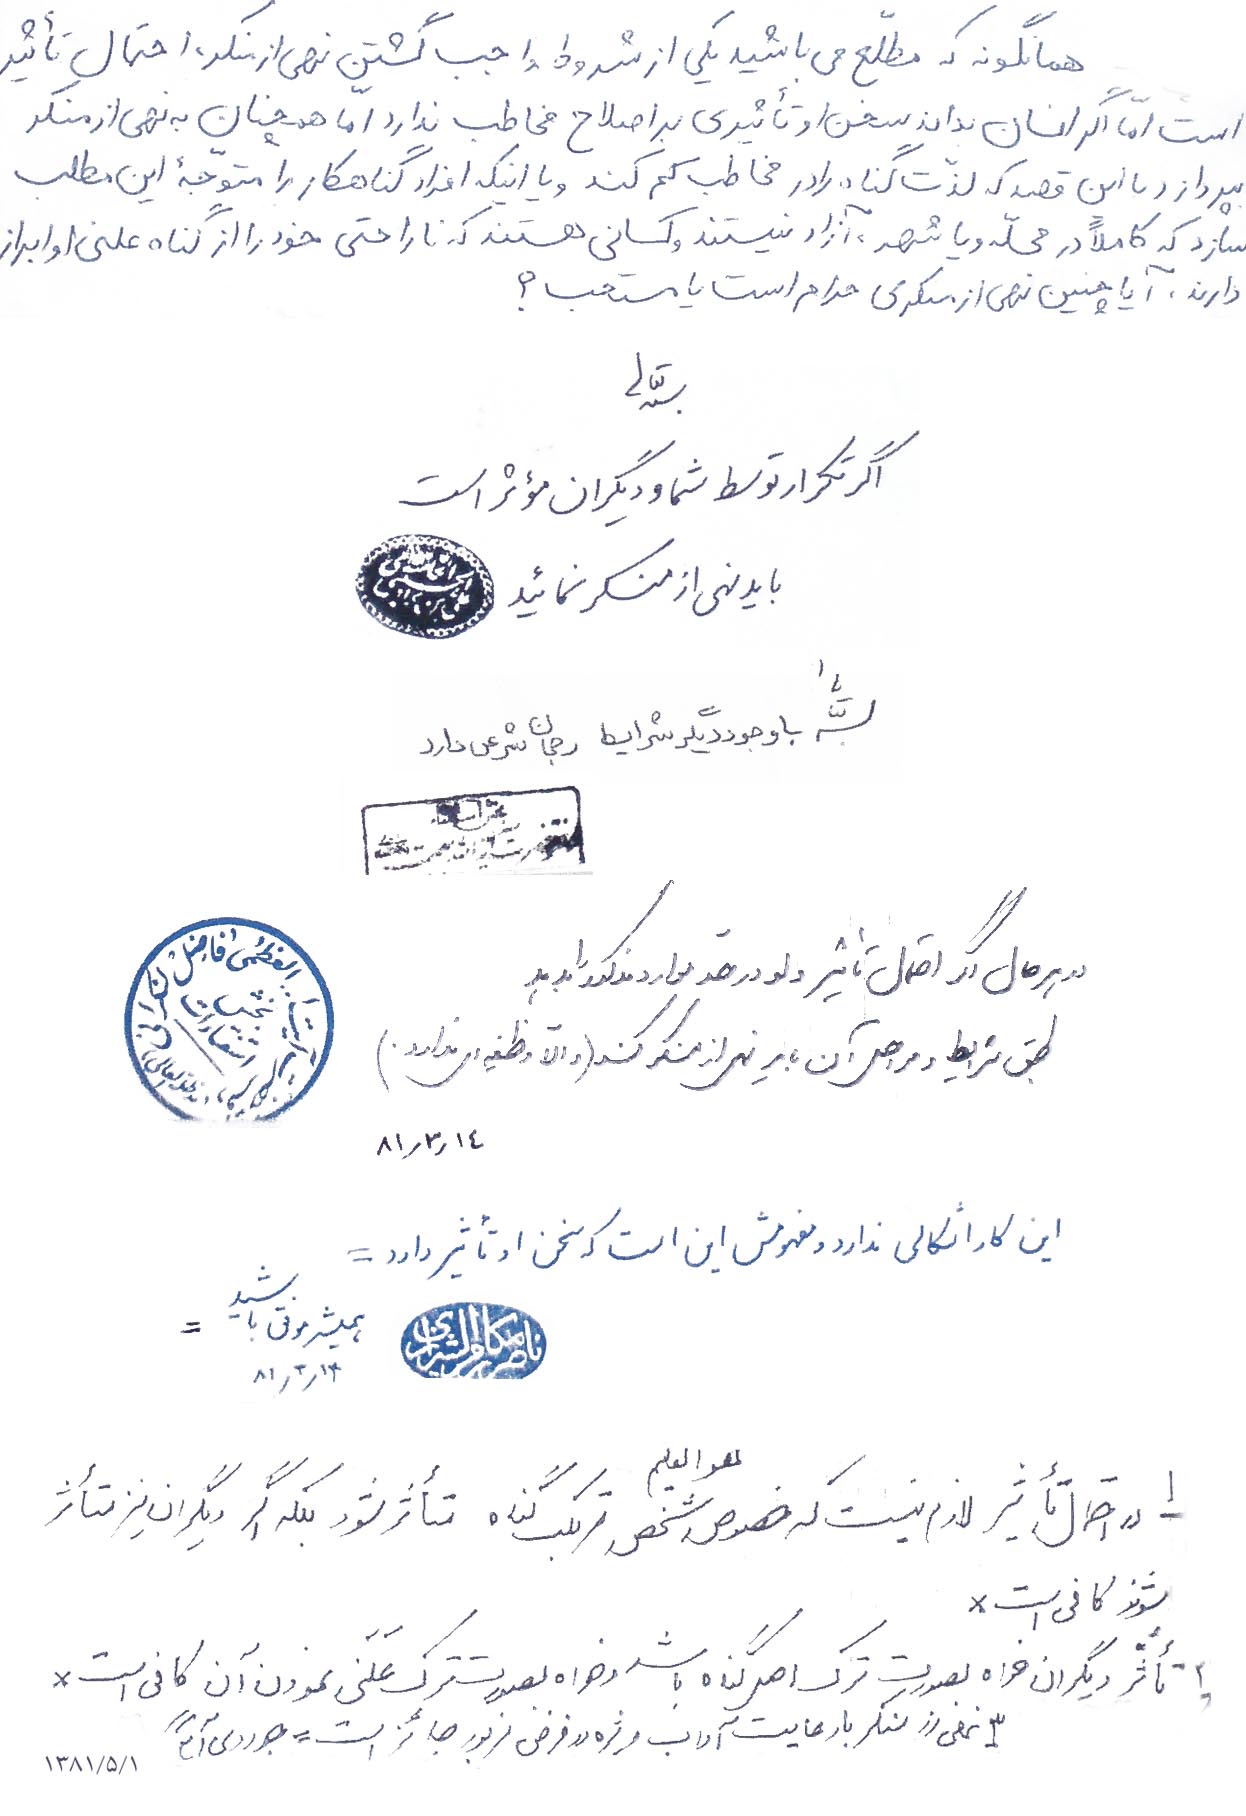 همانگونه که مطلّع می باشید یکی از شروط واجب گشتن نهی از منکر، احتمال تأثیر
است امّا اگر انسان بداند سخن او تأثیری بر اصلاح مخاطب ندارد امّا همچنان به نهی از منکر
بپردازد با این قصد که لذّت گناه را در مخاطب کم کند و یا اینکه افراد گناهکار را متوجّهٔ این مطلب
سازد که کاملاً در محلّه و یا شهر، آزاد نیستند و کسانی هستند که ناراحتی خود را از گناه علنی او ابراز
دارند، آیا چنین نهی از منکری حرام است یا مستحب؟
بسمه تعالی
اگر تکرار توسط شما و دیگران مؤثر است
باید نهی از منکر نمائید
با وجود دیگر شرایط رجحان شرعی دارد
العظمی فاضل لنکرانی
بخش
استفتاءات
در هر حال اگر احتمال تأثیر ولو در حد موارد مذکور را بدهد
طبق شرایط و مراحل آن باید نهی از منکر کند (والّا وظیفه ای ندارد.)
۸۱/۳/۱۴
این کار اشکالی ندارد و مفهومش این است که سخن او تأثیر دارد =
همیشه موفق باشید =
ناصر مکارم الشیرازی
۸۱/۳/۱۴
هو العلیم
۱- در احتمال تأثیر لازم نیست که خصوص شخص مرتکب گناه متأثر شود بلکه اگر دیگران نیز متأثر
شوند کافی است ×
۲- تأثّر دیگران خواه بصورت ترک اصل گناه باشد و خواه بصورت ترک عَلَنی نمودن آن کافی است ×
۳ نهی از منکر با رعایت آداب ویژه در فرض مزبور جائز است = جوادی آملی
۱۳۸۱/۵/۱